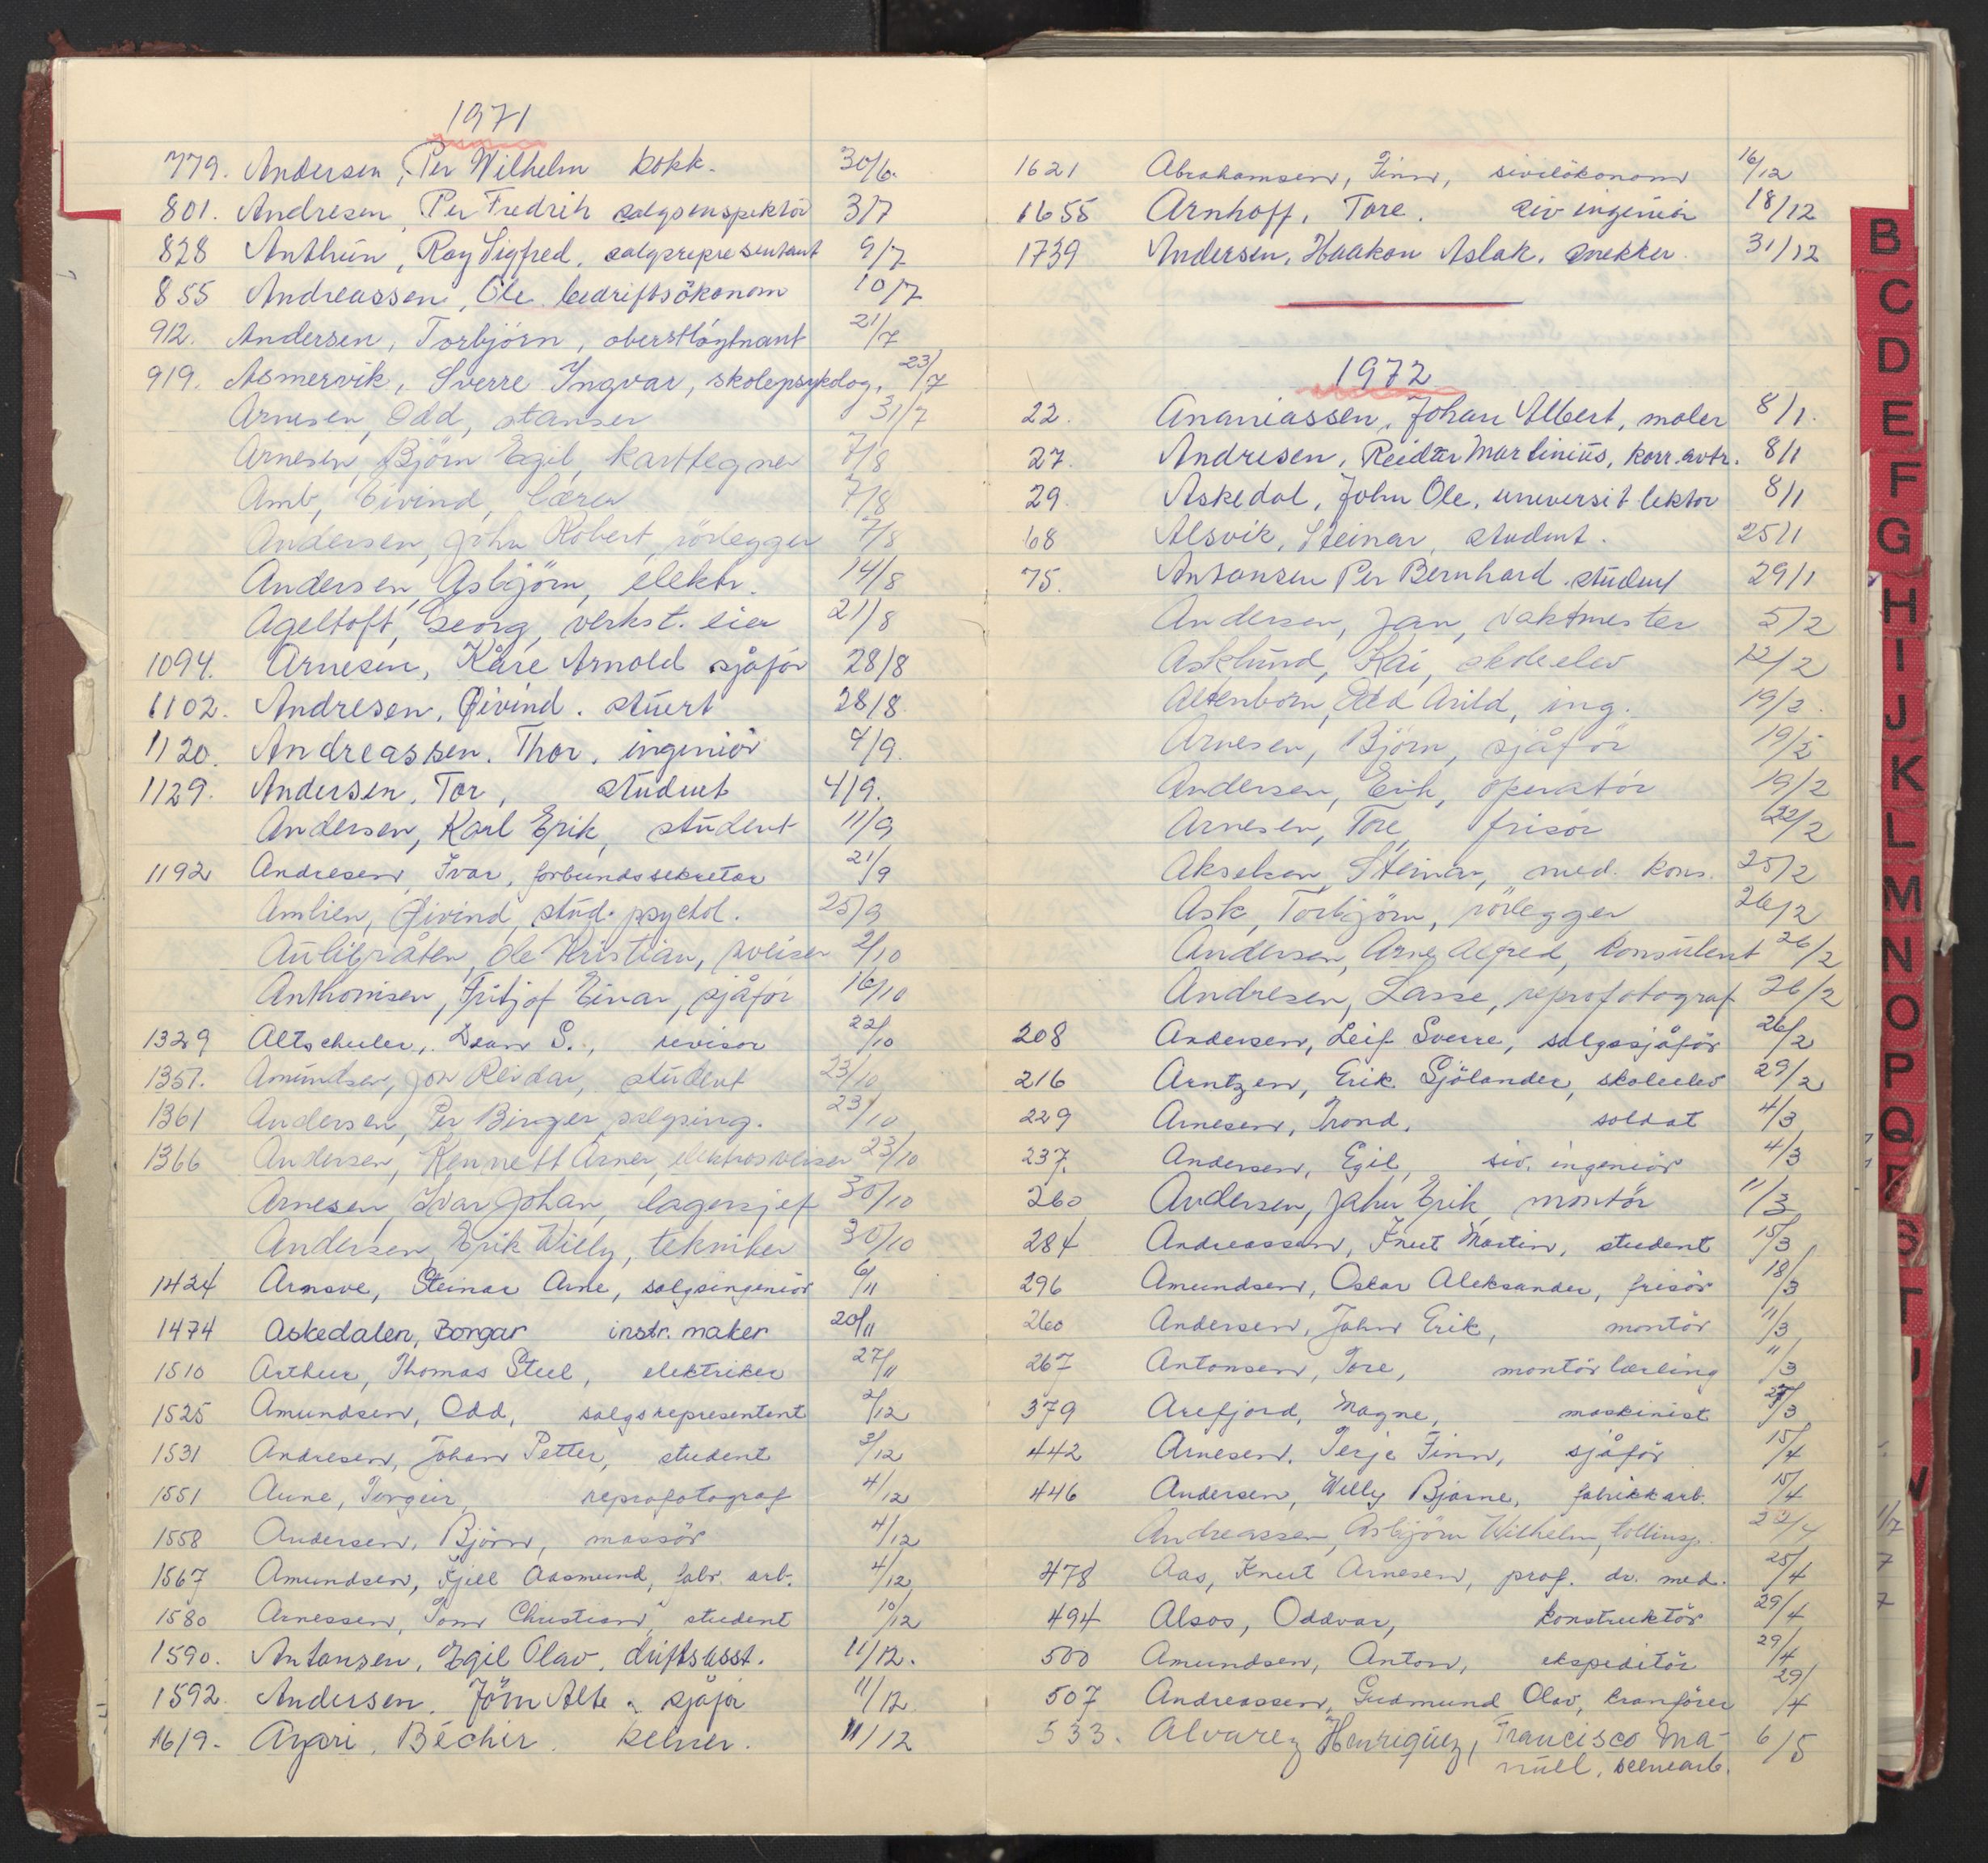 1971
779. Andersen, Per Wilhelm kokk. 30/6.
801. Andresen, Per Fredrik salgsinspektör 3/7
828 Anthun, Roy Sigfred, salgsrepresentant 9/7
855 Andreassen, Ole bedriftsökonom 10/7
912. Andersen, Torbjörn, oberstløytnant 21/7
919. Asmervik, Sverre Ingvar, skolepsykolog, 23/7
Arnesen, Odd, stanser 31/7
Arnesen, Björn Egil, karttegner 7/8
Amb, Eivind, lærer 7/8
Andersen, John Robert, rörlegger 7/8
Andersen, Asbjörn, elektr. 14/8
Ageltoft, Georg, verkst. eier 21/8
1094. Arnesen, Kåre Arnold sjåför 28/8
1102. Andresen, Øivind. stuert 28/8.
1120. Andreassen. Thor. ingeniör 4/9.
1129. Andersen. Tor, student 4/9.
Andersen, Karl Erik, student 11/9
1192 Andresen, Ivar, forbundssekretær 21/9
Amlien, Øivind, stud. psychol. 25/9
Aulibråten, Ole Kristian, sveiser 2/10
Anthonisen, Fritjof Einar, sjåför 16/10
1329 Altschuler, Dean S., revisor 22/10
1351. Amundsen, Jon Reidar, student 23/10
1361 Andersen, Per Birger, salgsing. 23/10
1366 Andersen, Kennett Arner, elektrosveiser 23/10
Arnesen, Ivar Johan, lagersjef 30/10
Andersen, Erik Willy, tekniker 30/10
1424 Arnsve, Steinar Arne, salgsingeniör 6/11
1474 Askedalen, Borgar instr. maker 20/11
1510 Arthur, Thomas Steel, elektriker 27/11
1525 Amundsen, Odd, salgsrepresentant 2/12
1531 Andresen, Johan Petter, student 3/12
1551 Aune, Torgeir, reprofotograf 4/12
1558 Andersen, Björn, massör 4/12
1567 Amundsen, Kjell Aasmund, fabr. arb. 4/12
1580 Arnessen, Tom Christian, student 10/12
1590. Antonsen, Egil Olav, driftsasst. 11/12.
1592. Andersen, Jörn Atle, sjåför 11/12.
1619. Ayari, Béchir. kelner. 11/12
1621 Abrahamsen, Finn, sivilökonom 16/12
1655 Arnhoff, Tore. siv ingeniör 18/12
1739 Andersen, Haakon Aslak, snekker. 31/12
1972
22. Ananiassen, Johan Albert, maler 8/1.
27. Andresen, Reidar Martinius, korr. 8/1
29. Askedal, John Ole, universit lektor 8/1
68 Alsvik, Steinar, student. 25/1
75. Antonsen Per Bernhard. student 29/1
Andersen, Jan, vaktmester 5/2
Asklund, Kai, skoleelev 12/2
Altenborn, Odd Arild, ing. 19/2.
Arnesen, Björn, sjåför 19/2
Andersen, Erik, operatör 19/2
Arnesen, Tore, frisör 22/2
Akselsen, Steinar, med. kons. 25/2
Ask, Torbjörn, rörlegger 26/2
Andersen, Arne Alfred, konsulent 26/2
Andresen, Lasse, reprofotograf 26/2
208 Andersen, Leif Sverre, salgssjåför 26/2
216 Arntzen, Erik Sjölander, skoleelev 29/2
229 Arnesen, Trond, soldat 4/3
237. Andersen, Egil, siv. ingeniör 4/3
260 Andersen, John Erik, montör 11/3
284 Andreassen, Knut Martin, student 15/3
296 Amundsen, Oskar Aleksander, frisör 18/3
260 Andersen, John Erik, montör 11/3
267 Antonsen, Tore, montörlærling 11/3
379 Arefjord, Magne, maskinist 27/3
442 Arnesen, Terje Finn, sjåför 15/4
446 Andersen, Willy Bjarne, fabrikkarb. 15/4
Andreassen, Asbjörn Wilhelm, tollinsp. 22/4
478 Aas, Knut Arnesen, prof. dr. med. 25/4
494 Alsos, Oddvar, konstruktör 29/4
500 Amundsen, Anton, ekspeditör 29/4
507 Andreassen, Gudmund Olav, kranförer 29/4
533. Alvarez Henriquez, Francisco Ma- 6/5
nuel, scenearb.
B
C
D
E
F
G
H
I
J
K
L
M
N
O
P
Q
S
T